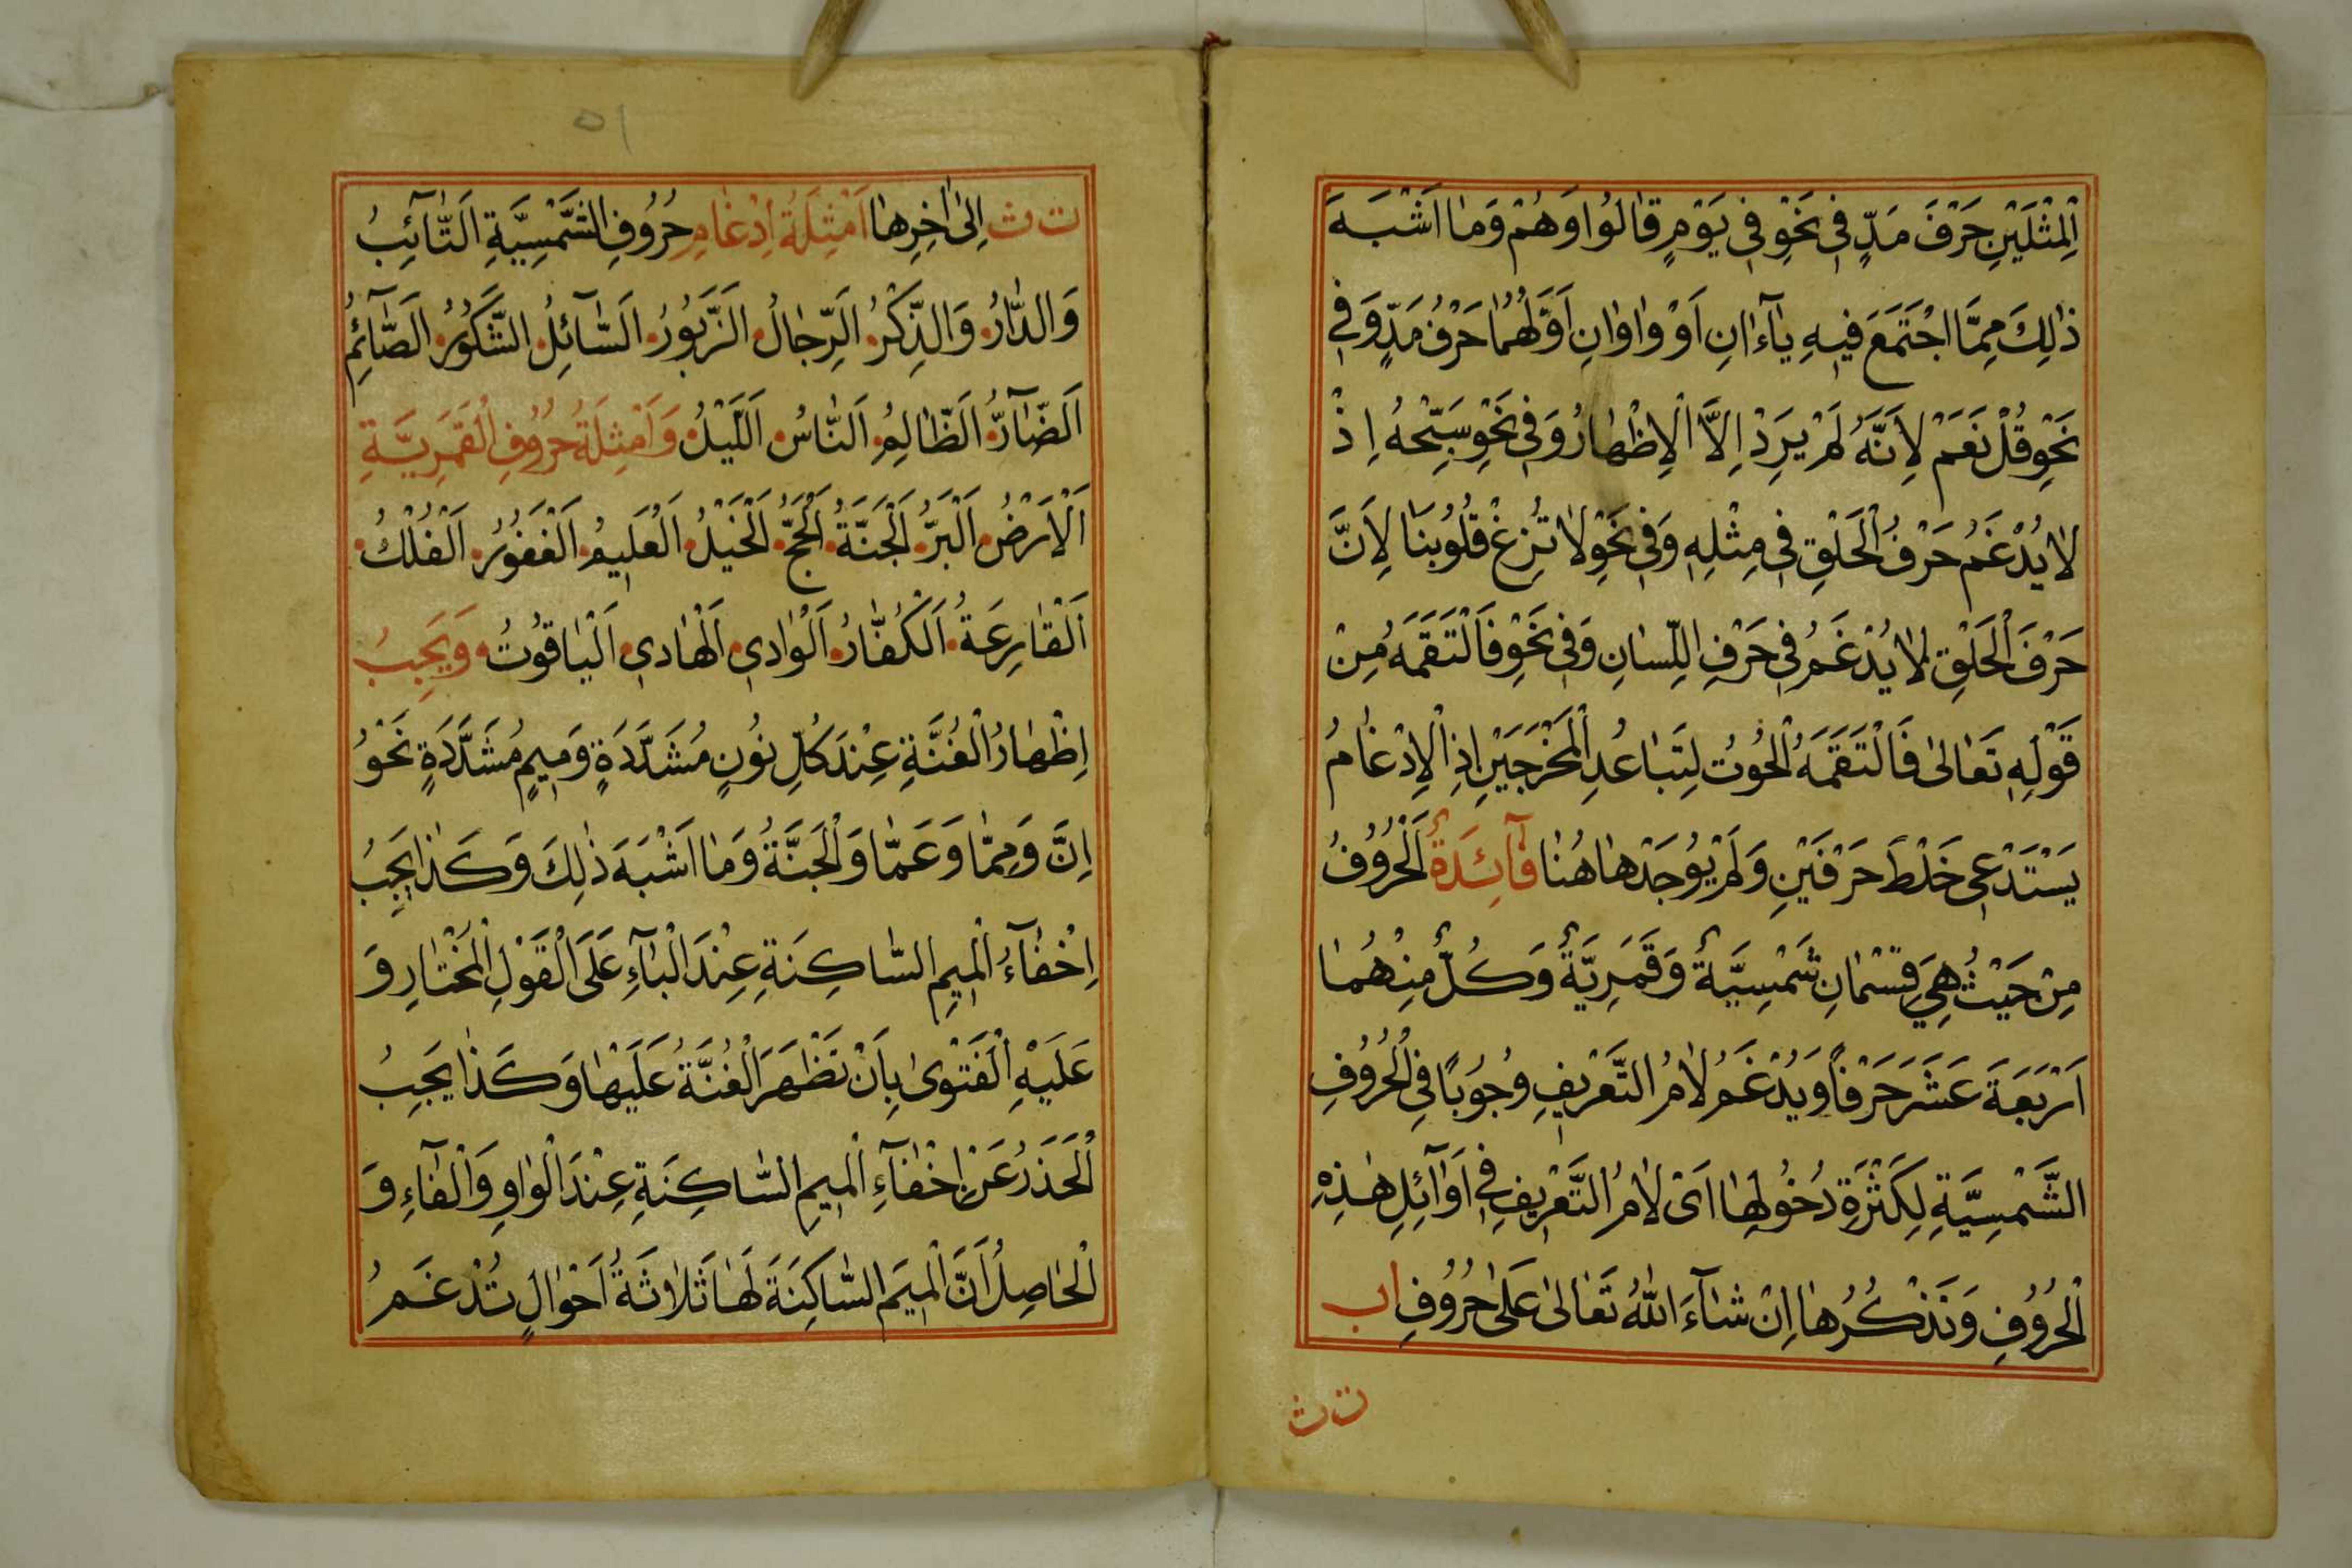 اَلْمِثْلَيْنِ حَرْفَ مَدٍّ فِي نَحْوِ فِي يَوْمٍ قَالُوا وَهُمْ وَمَا اَشْبَهَ
ذٰلِكَ مِمَّا اجْتَمَعَ فِيهِ يَآءَانِ اَوْ وَاوَانِ اَوَّلُهُمَا حَرْفُ مَدٍّ وَفِي
نَحْوِ قُلْ نَعَمْ لِاَنَّهُ لَمْ يَرِدْ اِلَّا الْاِظْهَارُ وَفِي نَحْوِ سَبِّحْهُ اِذْ
لَا يُدْغَمُ حَرْفُ الْحَلْقِ فِي مِثْلِهِ وَفِي نَحْوِ لَا تُزِغْ قُلُوبَنَا لِاَنَّ
حَرْفَ الْحَلْقِ لَا يُدْغَمُ فِي حَرْفِ اللِّسَانِ وَفِي نَحْوِ فَالْتَقَمَهُ مِنْ
قَوْلِهِ تَعَالٰى فَالْتَقَمَهُ الْحُوتُ لِتَبَاعُدِ الْمَخْرَجَيْنِ اِذِ الْاِدْغَامُ
يَسْتَدْعِي خَلْطَ حَرْفَيْنِ وَلَمْ يُوجَدْ هَاهُنَا فَآئِدَةٌ اَلْحُرُوفُ
مِنْ حَيْثُ هِيَ قِسْمَانِ شَمْسِيَّةٌ وَقَمَرِيَّةٌ وَكُلٌّ مِنْهُمَا
اَرْبَعَةَ عَشَرَ حَرْفًا وَيُدْغَمُ لَامُ التَّعْرِيفِ وُجُوبًا فِي الْحُرُوفِ
الشَّمْسِيَّةِ لِكَثْرَةِ دُخُولِهَا اَيْ لَامُ التَّعْرِيفِ فِي اَوَآئِلِ هٰذِهِ
الْحُرُوفِ وَنَذْكُرُهَا اِنْ شَآءَ اللّٰهُ تَعَالٰى عَلٰى حُرُوفِ اب
ت ث
٥١
ت ث اِلٰى اٰخِرِهَا اَمْثِلَةُ اِدْغَامِ حُرُوفِ الشَّمْسِيَّةِ اَلتَّآئِبُ
وَالدَّارُ وَالذِّكْرُ اَلرِّجَالُ اَلزَّبُورُ اَلسَّآئِلُ الشَّكُورُ اَلصَّآئِمُ
اَلضَّآرُّ اَلظَّالِمُ اَلنَّاسُ اَللَّيْلُ وَاَمْثِلَةُ حُرُوفِ الْقَمَرِيَّةِ
اَلْاَرْضُ اَلْبَرُّ اَلْجَنَّةُ اَلْحَجُّ اَلْخَيْلُ اَلْعَلِيمُ اَلْغَفُورُ اَلْفُلْكُ
اَلْقَارِعَةُ اَلْكُفَّارُ اَلْوَادِي اَلْهَادِي اَلْيَاقُوتُ وَيَجِبُ
اِظْهَارُ الْغُنَّةِ عِنْدَ كُلِّ نُونٍ مُشَدَّدَةٍ وَمِيمٍ مُشَدَّدَةٍ نَحْوُ
اِنَّ وَمِمَّا وَعَمَّا وَالْجَنَّةُ وَمَا اَشْبَهَ ذٰلِكَ وَكَذَا يَجِبُ
اِخْفَآءُ الْمِيمِ السَّاكِنَةِ عِنْدَ الْبَآءِ عَلَى الْقَوْلِ الْمُخْتَارِ وَ
عَلَيْهِ الْفَتْوٰى بِاَنْ تَظْهَرَ الْغُنَّةُ عَلَيْهَا وَكَذَا يَجِبُ
الْحَذَرُ عَنْ اِخْفَآءِ الْمِيمِ السَّاكِنَةِ عِنْدَ الْوَاوِ وَالْفَآءِ وَ
الْحَاصِلُ اَنَّ الْمِيمَ السَّاكِنَةَ لَهَا ثَلَاثَةُ اَحْوَالٍ تُدْغَمُ